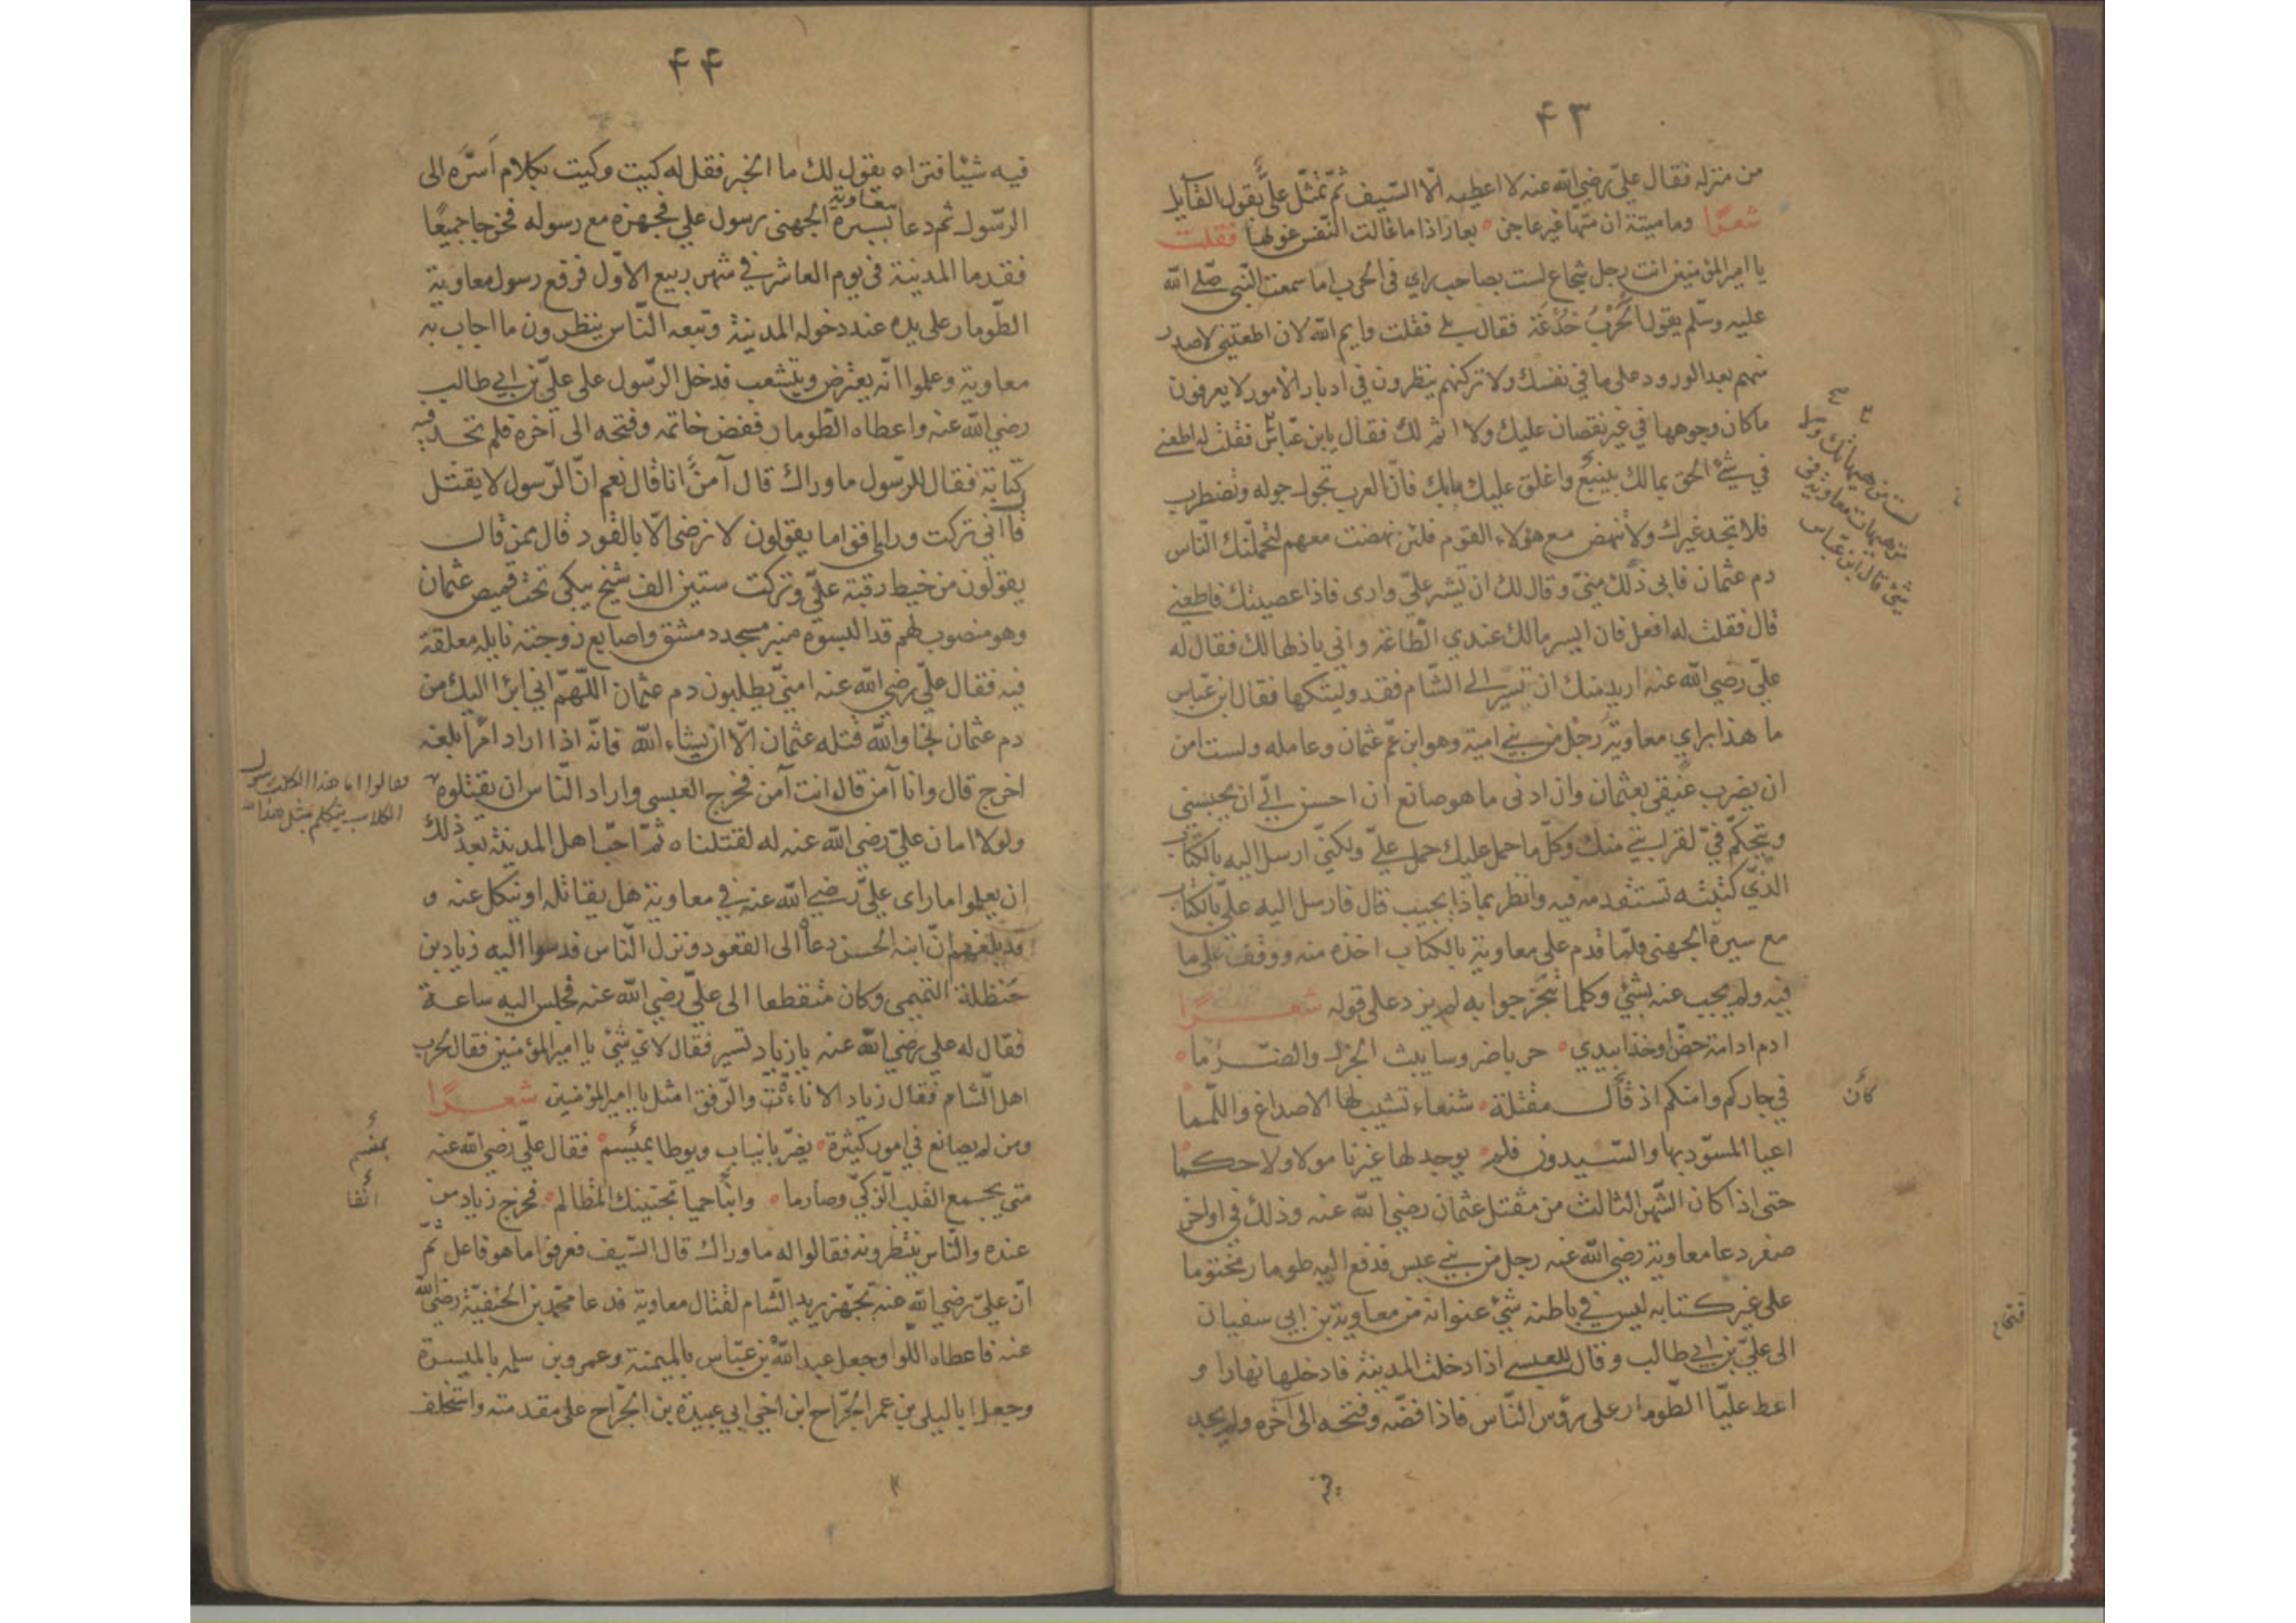 ۴۳
من منزله فقال عليّ رضي الله عنه لا اعطيه الّا السّيف ثمّ تمثّل عليّ بقول القايل
شعرًا وما ميتة ان متّها غير عاجز بعار اذا ما غالت النّفس غولها فقلت
يا امير المؤمنين انت رجل شجاع لست بصاحب راي في الحرب اما سمعت النّبي صلّى الله
عليه وسلّم يقول الحَرْبُ خُدْعَة فقال بلى فقلت وايم الله لان اطعتني لاصدر
بهم بعد الورود على ما في نفسك ولا تركنهم ينظرون في ادبار الامور لا يعرفون
ما كان وجوهها في غير نقصان عليك ولا اثم لك فقال يا بن عبّاس فقلت له اطعني
لست من هيهاتك ولا
من هيهات معاوية في
شئ قال ابن عبّاس
في شئ الحق بمالك بينبع واغلق عليك بابك فانّ العرب تجول جوله وتضطرب
فلا تجد غيرك ولا تنهض مع هؤلاء القوم فلئن نهضت معهم لتحملنّك النّاس
دم عثمان فابى ذلك منيّ وقال لك ان تشير عليّ وارى فاذا عصيتك فاطعني
قال فقلت له افعل فان ايسر مالك عندي الطّاعة واني باذلها لك فقال له
عليّ رضي الله عنه اريد منك ان تسير الى الشّام فقد وليتكها فقال ابن عبّاس
ما هذا براي معاوية رجل من بني امية وهو ابن عمّ عثمان وعامله ولست امن
ان يضرب عنقي بعثمان وان ادنى ما هو صانع ان احسن اليّ ان يحبسني
ويتحكّم فيّ لقرابتي منك وكلّ ما حمل عليك حمل عليّ ولكنّي ارسل اليه بالكتاب
الذّي كتبته تستقدمه فيه وانظر بماذا يجيب قال فارسل اليه عليّ بالكتاب
مع سبرة الجهني فلمّا قدم على معاوية بالكتاب اخذه منه ووقف على ما
فيه ولم يجيب عنه بشئ وكلما تنجز جوابه لم يزد على قوله شعـرًا
ادم ادامة حضّا وخذا بيدي حربا ضروسا يبث الجزل والضّرما
في جاركم وابنكم اذ قال مقتلة شنعاء تشيب لها الاصداغ واللّمما
كأن
اعيا المسّود بها والسّيدون فلم يوجد لها غيرنا مولا ولا حكما
حتى اذا كان الشّهر الثالث من مقتل عثمان رضي الله عنه وذلك في اواخر
صفر دعا معاوية رضي الله عنه رجل من بني عبس فدفع اليه طومار مختوما
على غير كتابه ليس في باطنه شئ عنوانه من معاوية بن ابي سفيان
الى عليّ بن ابي طالب وقال للعبسي اذا دخلت المدينة فادخلها نهارا و
اعط عليّا الطّومار على رؤس النّاس فاذا فضّه وفتحه الى آخره ولم يجد
۴۴
فيه شيئا فتراه يقول لك ما الخبر فقل له كيت وكيت بكلام اَسرَّه الى
معاوية
الرّسول ثم دعا بسبرة الجهنى رسول علي فجهزه مع رسوله فخرجا جميعًا
فقدما المدينة في يوم العاشر في شهر ربيع الاوّل فرفع رسول معاوية
الطّومار على يده عند دخوله المدينة وتبعه النّاس ينظرون ما اجاب به
معاوية وعلموا انّه يعترض ويتشعب فدخل الرّسول على عليّ بن ابي طالب
رضي الله عنه واعطاه الطّومار ففض خاتمه وفتحه الى آخره فلم يجد فيه
كتابة فقال للرّسول ما وراك قال آمنٌ انا قال نعم انّ الرّسول لا يقتل
قال انّي تركت وراي اقواما يقولون لا نرضى الّا بالقود قال ممن قال
يقولون من خيط رقبة عليّ وتركت ستين الف شيخ يبكي تحت قميص عثمان
وهو منصوب لهم قد البسوه منبر مسجد دمشق واصابع زوجته نايله معلقة
فيه فقال عليّ رضي الله عنه امنيّ يطلبون دم عثمان اللّهمّ اني ابرا اليك من
دم عثمان نجا والله قتله عثمان الّا ان يشاء الله فانّه اذا اراد امرًا بلغه
اخرج قال وانا آمن قال انت آمن فخرج العبسي واراد النّاس ان يقتلوه
فقالوا اما هذا الكلب رسول
الكلاب يتكلم بمثل هذا
ولولا امان عليّ رضي الله عنه له لقتلناه ثمّ احبّ اهل المدينة بعد ذلك
ان يعلموا ما راى عليّ رضي الله عنه في معاوية هل يقاتله او ينكل عنه و
قد بلغهم انّ ابنه الحسن دعاه الى القعود ونزل النّاس فدسوا اليه زياد بن
حَنظلة التميمي وكان منقطعا الى عليّ رضي الله عنه فجلس اليه ساعة
فقال له علي رضي الله عنه يا زياد تسير فقال لاي شئ يا امير المؤمنين فقال لحرب
اهل الشّام فقال زياد الاناءة والرّفق امثل يا امير المؤمنين شعـرًا
ومن لم يصانع في امور كثيرة يضرّ بانياب ويوطا بميسم فقال عليّ رضي الله عنه
بمنسم
متى يجمع القلب الزكيّ وصارما وانفا حميا تجتنبك المظالم فخرج زياد من
انفا
عنده والنّاس ينتظرونه فقالوا له ما وراك قال السّيف فعرفوا ما هو فاعل ثمّ
انّ عليّ رضي الله عنه تجّهز يريد الشّام لقتال معاوية فدعا محّمد بن الحنفيّة رضي الله
عنه فاعطاه اللّوا وجعل عبد الله بن عبّاس بالميمنة وعمرو بن سلمه بالميسرة
وجعل ابا ليلى بن عمر الجرّاح ابن اخي ابي عبيدة بن الجرّاح على مقدمته واستخلف